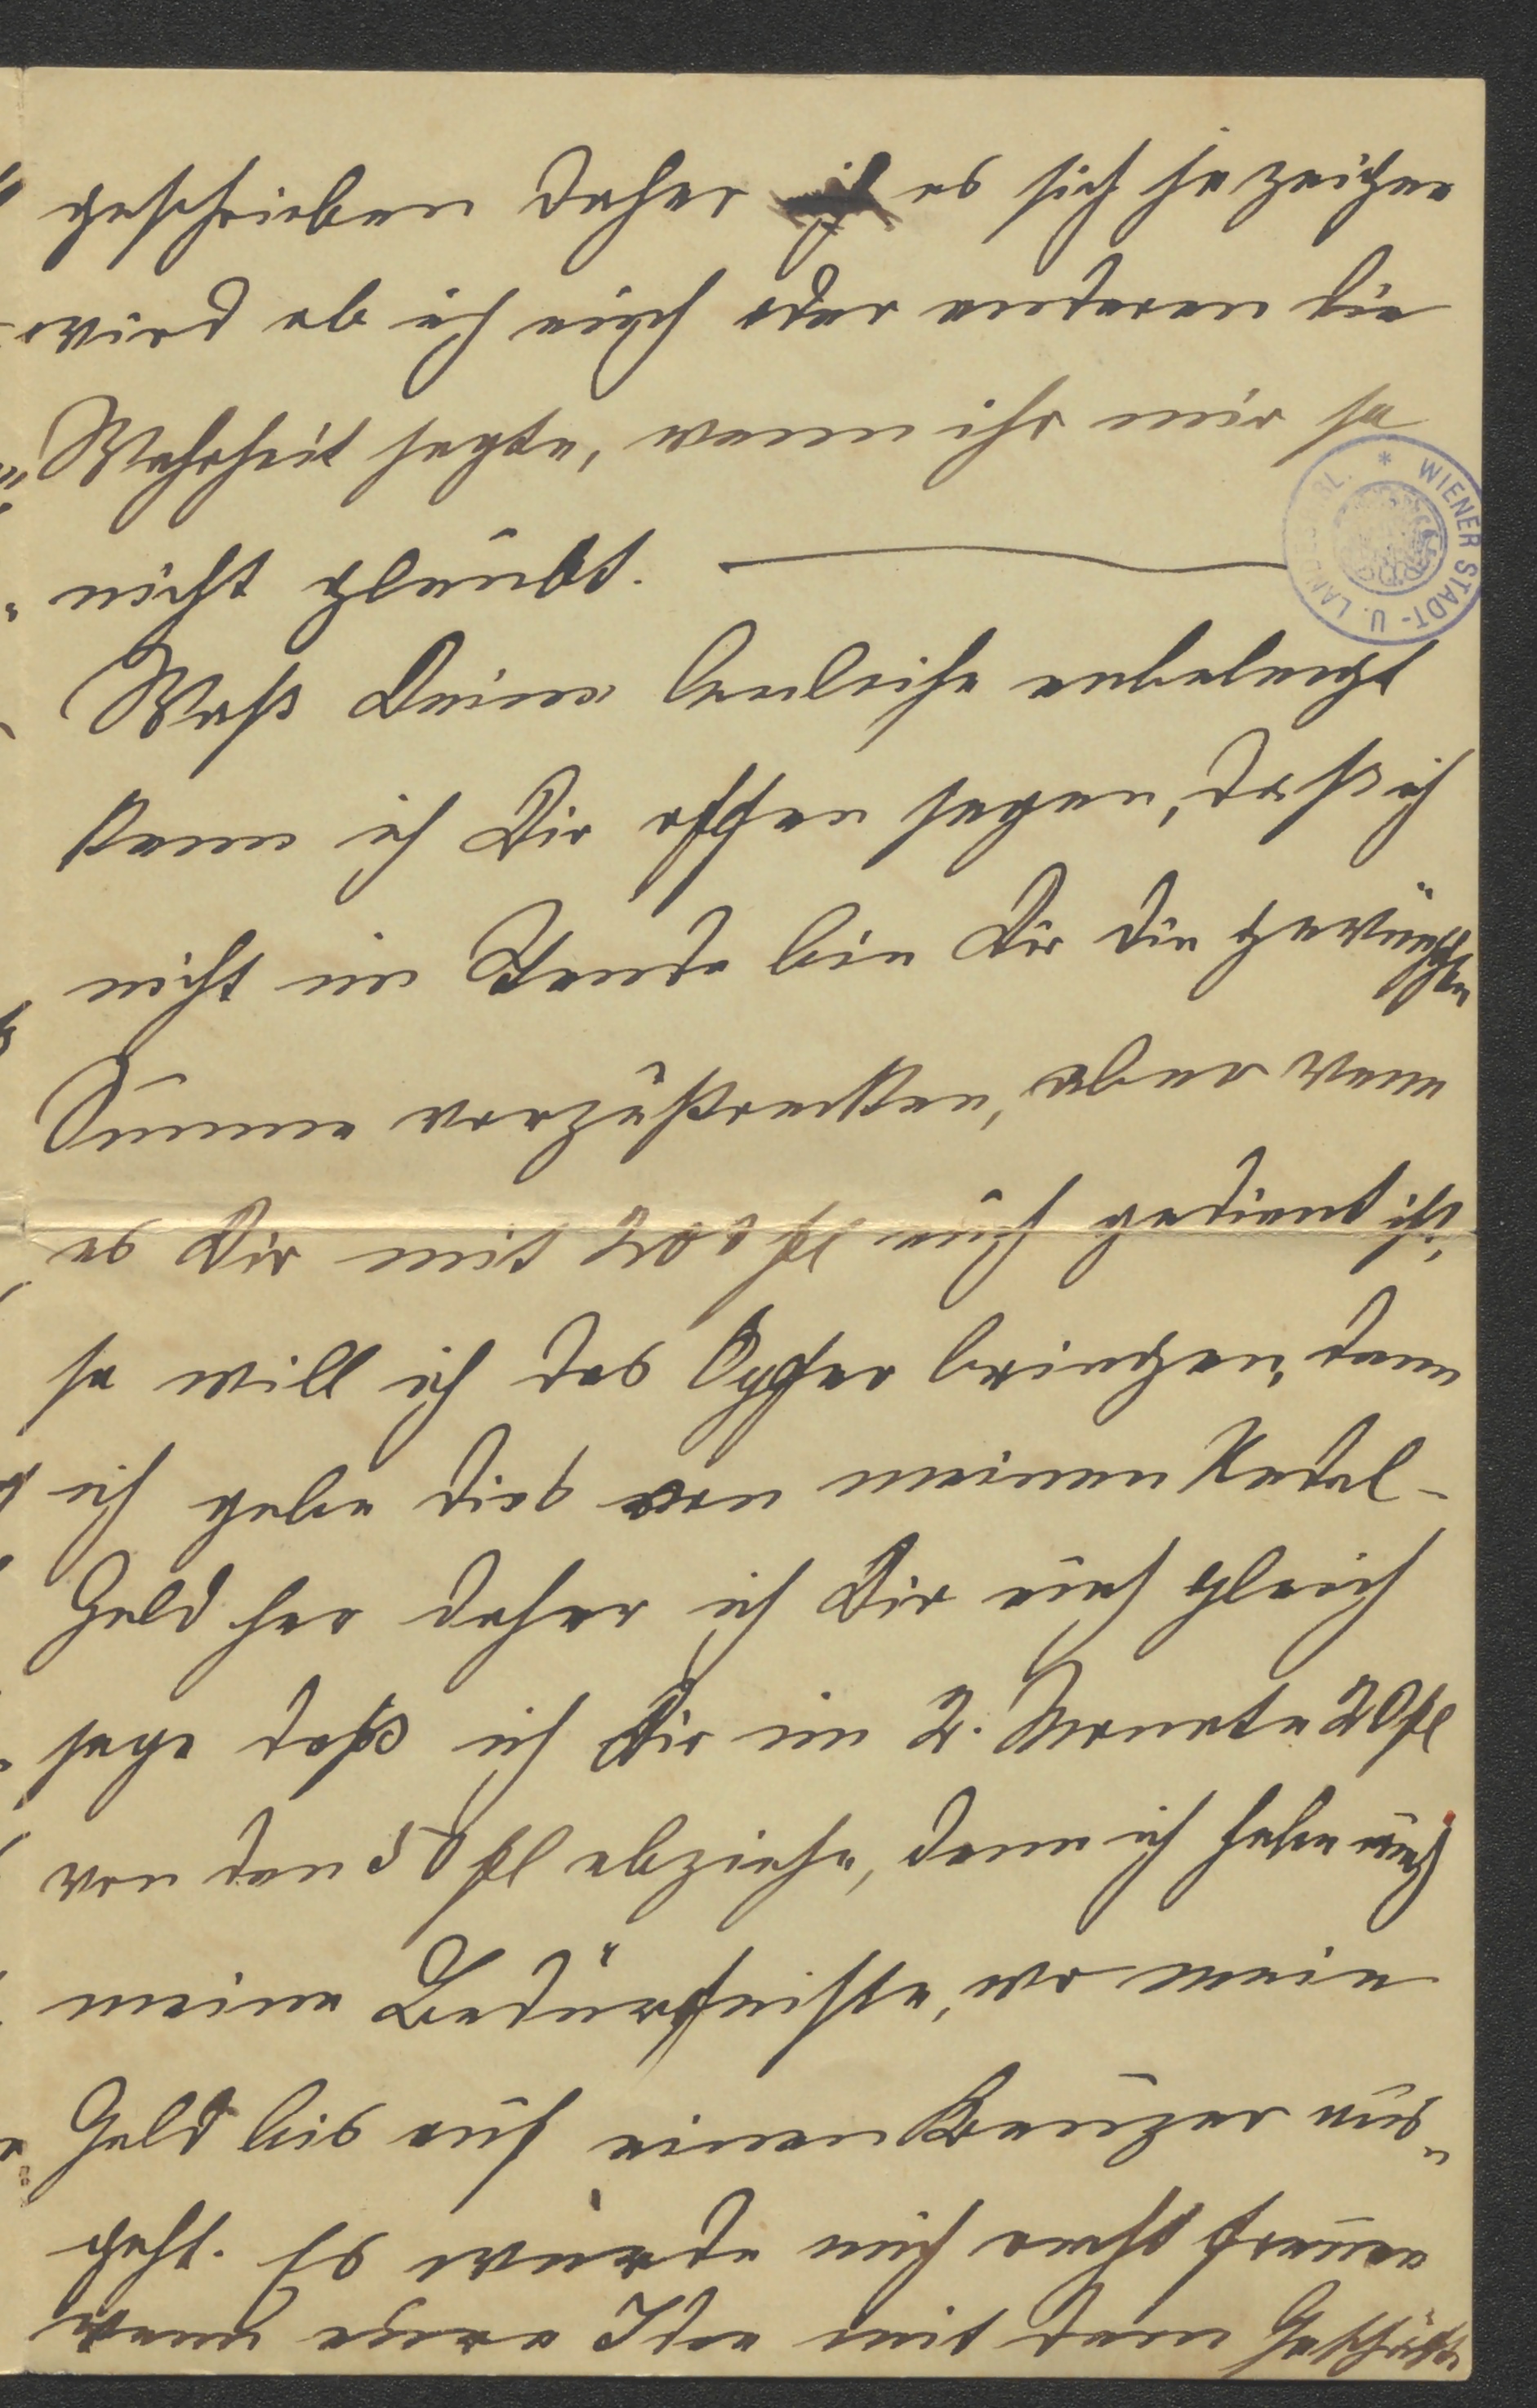 geschrieben daher es sich ja zeigen
wird ob ich euch oder anderen die
Wahrheit sagte, wenn ihr mir ja
nicht glaubt.
WIENER STADT- U. LAND BIBL.
Waß Deine Anleihe anbelangt
kann ich Dir offen sagen, daß ich
nicht im Stande bin Dir die gewünschten
Summe vorzustrecken, aber wenn
es Dir mit 200 fl auch gedient ist,
so will ich das Opfer bringen, denn
ich gebe dies von meinen Nadel-
Geld her daher ich Dir auch gleich
sage daß ich Dir im 2. Monate 20 fl
von den 50 fl abziehe, denn ich habe auch
meine Bedürfniße, wo mein
Geld bis auf einen Kreuzer aus„
geht. Es würde mich recht freuen
wenn eure Idee mit dem Geschäfte